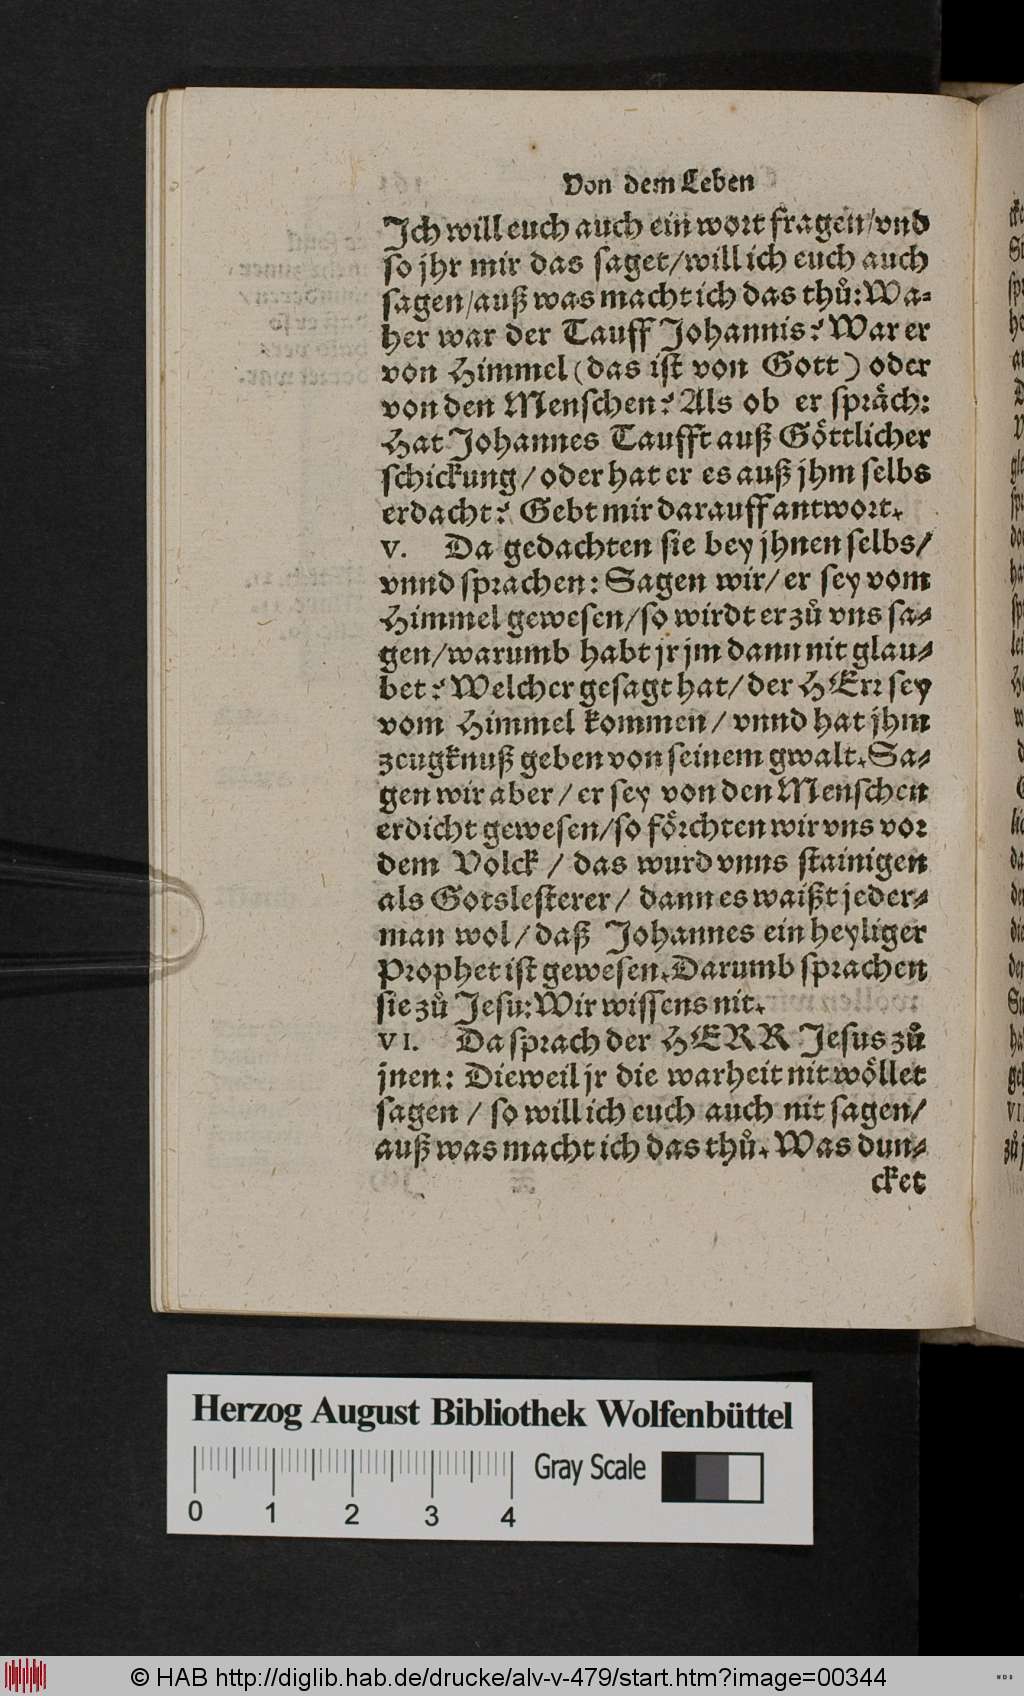 Von dem Leben
Ich will euch auch ein wort fragen/vnd
so jhr mir das saget/will ich euch auch
sagen/auß was macht ich das thů: Wa-
her war der Tauff Johannis? War er
von Himmel (das ist von Gott) oder
von den Menschen? Als ob er spräch:
Hat Johannes Taufft auß Göttlicher
schickung/oder hat er es auß jhm selbs
erdacht? Gebt mir darauff antwort.
V. Da gedachten sie bey jhnen selbs/
vnnd sprachen: Sagen wir/er sey vom
Himmel gewesen/so wirdt er zů vns sa-
gen/warumb habt jr jm dann nit glau-
bet? Welcher gesagt hat/der HErr sey
vom Himmel kommen/vnnd hat jhm
zeugknuß geben von seinem gwalt. Sa-
gen wir aber/er sey von den Menschen
erdicht gewesen/so förchten wir vns vor
dem Volck/das wurd vnns stainigen
als Gotslesterer/dann es waißt jeder-
man wol/daß Johannes ein heyliger
Prophet ist gewesen. Darumb sprachen
sie zů Jesu: Wir wissens nit.
VI. Da sprach der HERR Jesus zů
jnen: Dieweil jr die warheit nit wöllet
sagen/so will ich euch auch nit sagen/
auß was macht ich das thů. Was dun-
cket
Herzog August Bibliothek Wolfenbüttel
Gray Scale
0 1 2 3 4
© HAB http://diglib.hab.de/drucke/alv-v-479/start.htm?image=00344